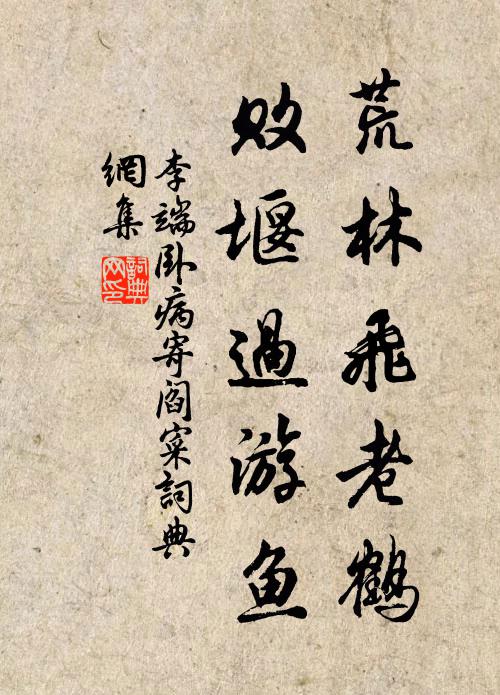 荒林飛老鶴
敗堰過游魚
李端臥病寄閻寀詞典
網集
詞典網印